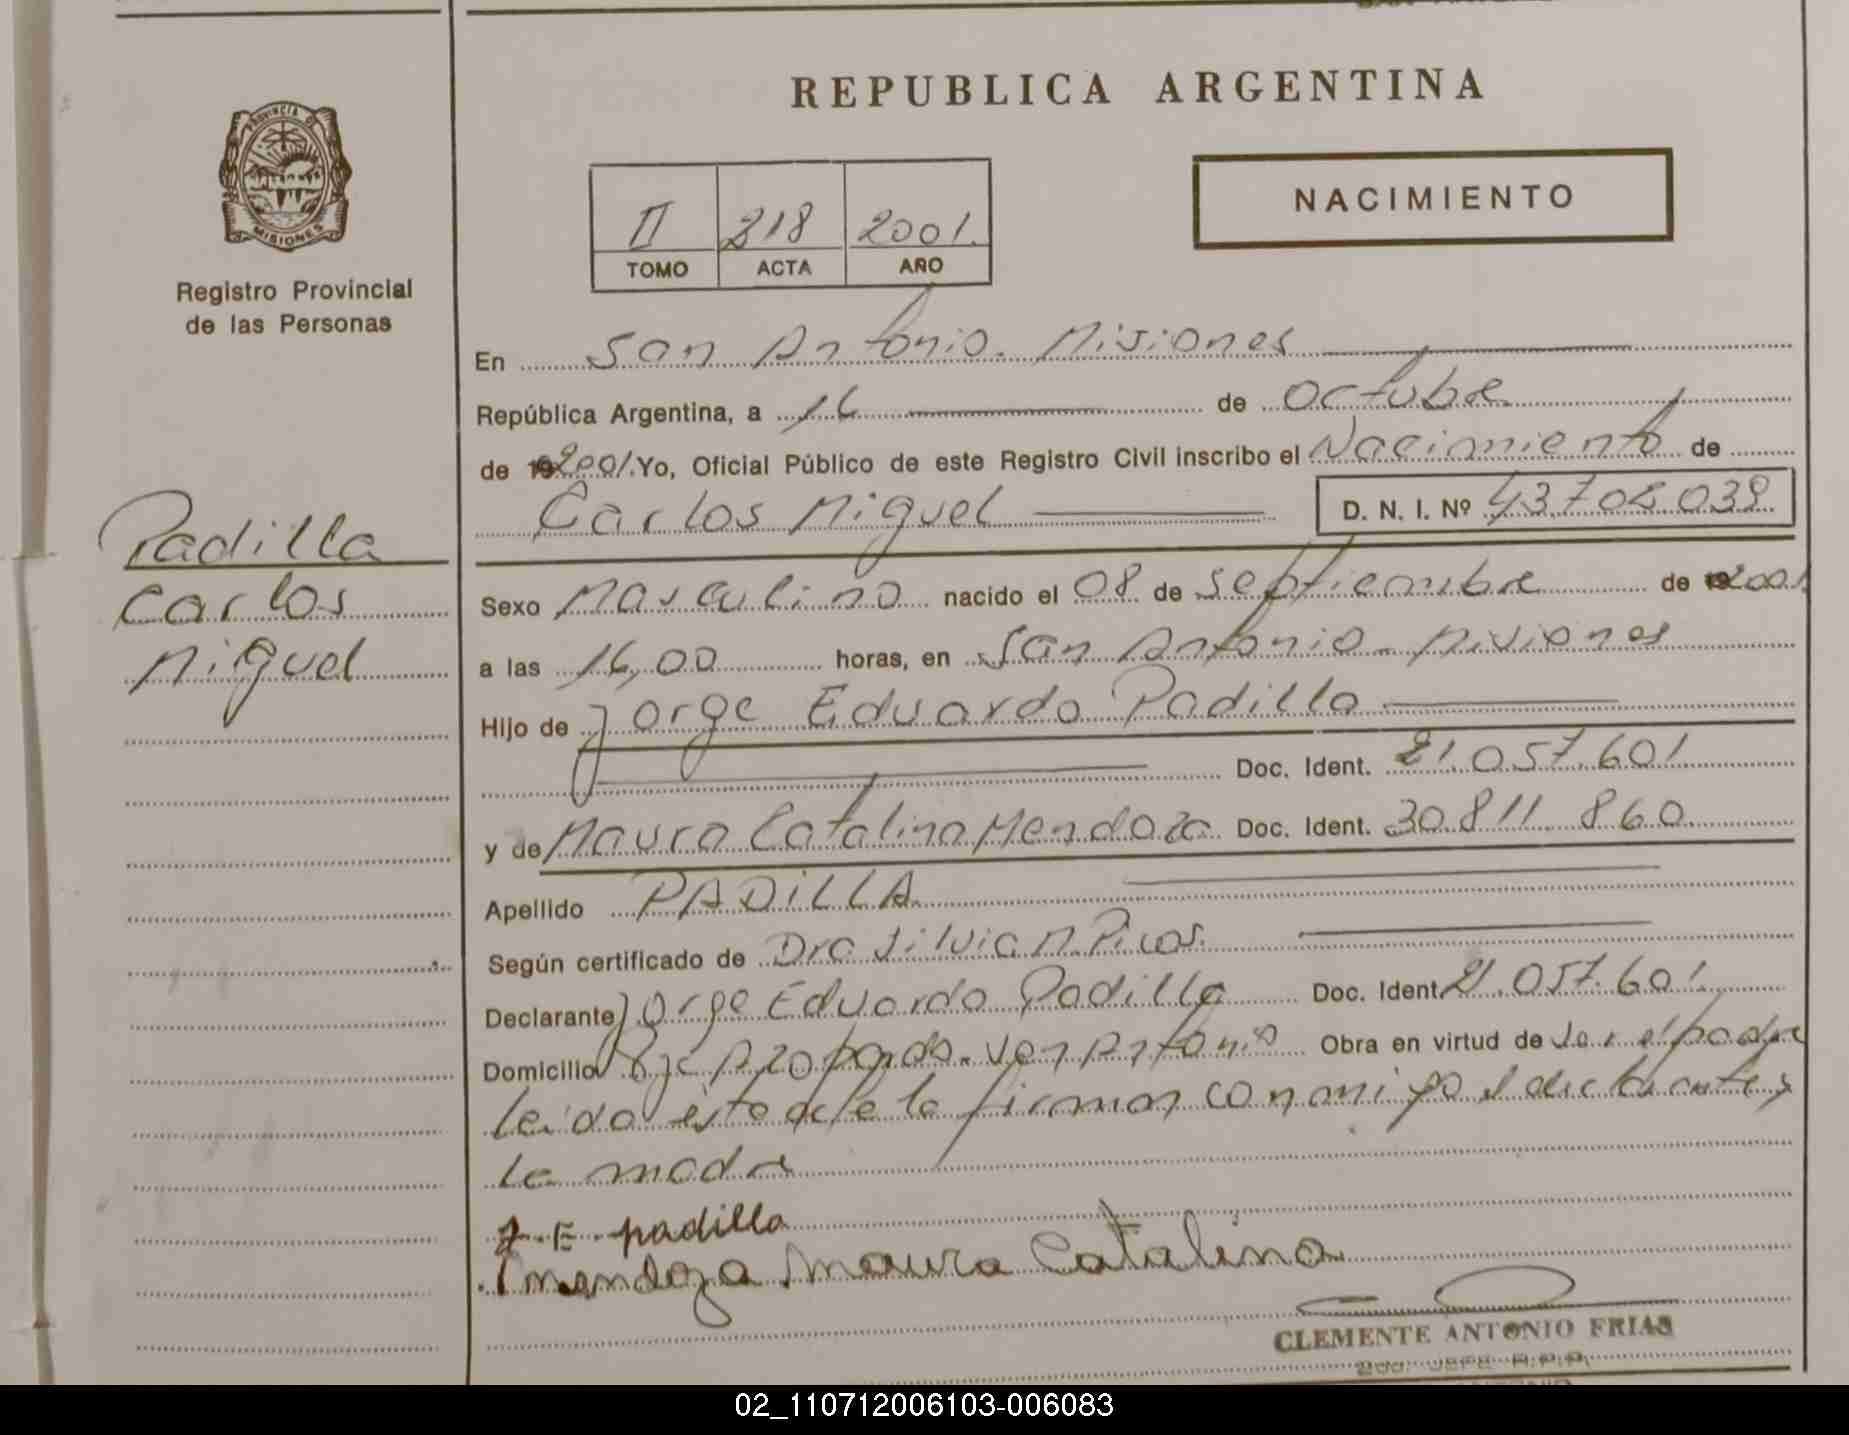 REPUBLICA ARGENTINA
PROVINCIA DE
MISIONES
Registro Provincial
de las Personas
NACIMIENTO
II 318 2001.
TOMO ACTA AÑO
En San Antonio. Misiones
República Argentina, a 16 de Octubre
de 192001. Yo, Oficial Público de este Registro Civil inscribo el Nacimiento de
Carlos Miguel D. N. I. Nº 43.708.039
Padilla
Carlos
Miguel
Sexo Masculino nacido el 08 de septiembre de 192001.
a las 16,00 horas, en San Antonio - Misiones
Hijo de Jorge Eduardo Padilla
Doc. Ident. 21.057.601
y de Maura Catalina Mendoza Doc. Ident. 30.811.860
Apellido PADILLA
Según certificado de Dra Silvia N. Picos.
Declarante Jorge Eduardo Padilla Doc. Ident. 21.057.601
Domicilio San Antonio Obra en virtud de ser el padre
leida esta acta la firman conmigo el declarante y
la madre
J. E. padilla
mendoza maura Catalina
CLEMENTE ANTONIO FRIAS
2do. JEFE R.P.P.
02_110712006103-006083